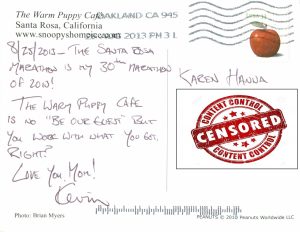 The Warm Puppy Cafe
Santa Rosa, California
www.snoopyshomeice.com
OAKLAND CA 945
2013 PM 3 L
8/25/2013 - THE SANTA ROSA
MARATHON IS MY 30th MARATHON
OF 2013!
THE WARM PUPPY CAFE
IS NO "BE OUR GUEST" BUT
YOU WORK WITH WHAT YOU GOT,
RIGHT?
LOVE YOU, MOM!
Kevin
KAREN HANNA
CONTENT CONTROL
CENSORED
CONTENT CONTROL
Photo: Brian Myers
PEANUTS © 2010 Peanuts Worldwide LLC